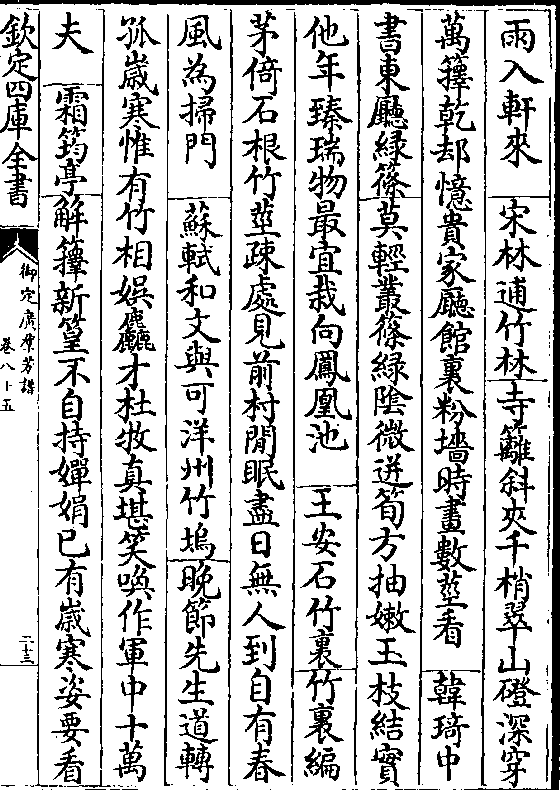 雨入軒來　宋林逋竹林寺籬斜夾千梢翠山磴深穿
萬籜乾却憶貴家廳館裏粉墻時畫數莖看　韓琦中
書東廳綠篠莫輕叢篠綠陰微迸筍方抽嫩玉枝結實
他年臻瑞物最宜栽向鳳凰池　王安石竹裏竹裏編
茅倚石根竹莖疎處見前村閒眠盡日無人到自有春
風為掃門　蘇軾和文與可洋州竹塢晚節先生道轉
孤歲寒惟有竹相娛麤才杜牧真堪笑喚作軍中十萬
夫　霜筠亭解籜新篁不自持嬋娟已有歲寒姿要看
欽定四庫全書
御定廣羣芳譜
卷八十五
二十三